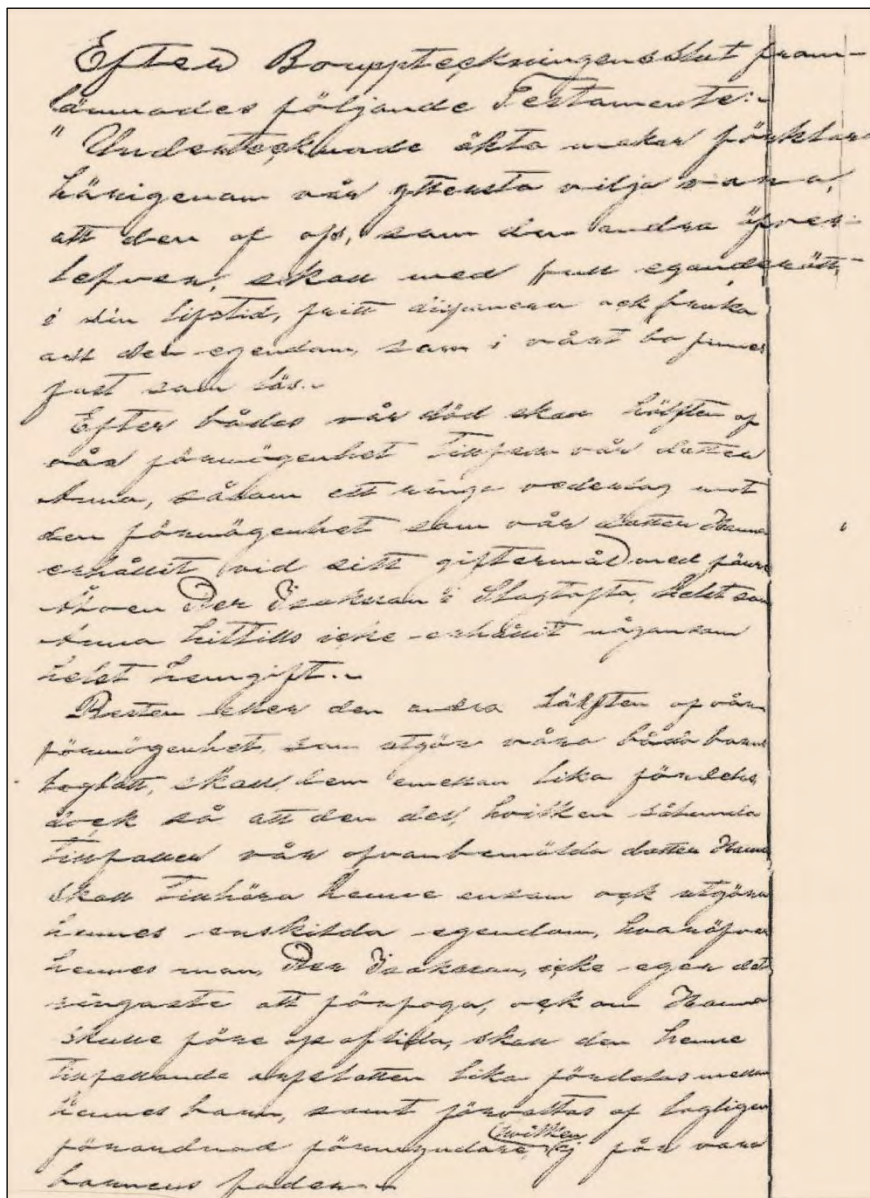 Efter Bouppteckningens slut fram-
lämnades följande Testamente:„
" Undertecknade äkta makar förklara
härigenom vår yttersta vilja vara,
att den af oss, som den andra öfver-
lefver, skall med full eganderätt,
i sin lifstid, fritt disponera och bruka
all den egendom, som i vårt bo finnes
fast som lös.„
Efter bådes vår död skall hälften af
vår förmögenhet tillfalla vår dotter
Anna, såsom ett ringa vederlag mot
den förmögenhet som vår dotter Hanna
erhållit vid sitt giftermål med förre
Åboen Per Isaksson i Slagtofta, helst som
Anna hittills icke erhållit någon som
helst hemgift.„
Resten eller den andra hälften af vår
förmögenhet, som utgör våra båda barns
laglott, skall dem emellan lika fördelas,
dock så att den del, hvilken sålunda
tillfaller vår ofvanbemälda dotter Hanna
skall tillhöra henne ensam och utgöra
hennes enskilda egendom, hvaröfver
hennes man, Per Isaksson, icke eger det
ringaste att förfoga, och om Hanna
skulle före oss aflida, skall den henne
tillfallande arfslotten lika fördelas mellan
hennes barn, samt förvaltas af lagligen
förordnad förmyndare, hvilken ej får vara
barnens fader.„